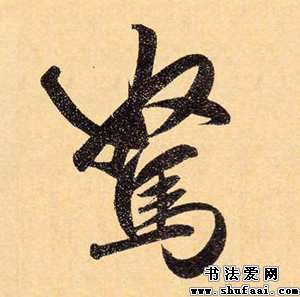 駑
书法爱网
www.shufaai.com